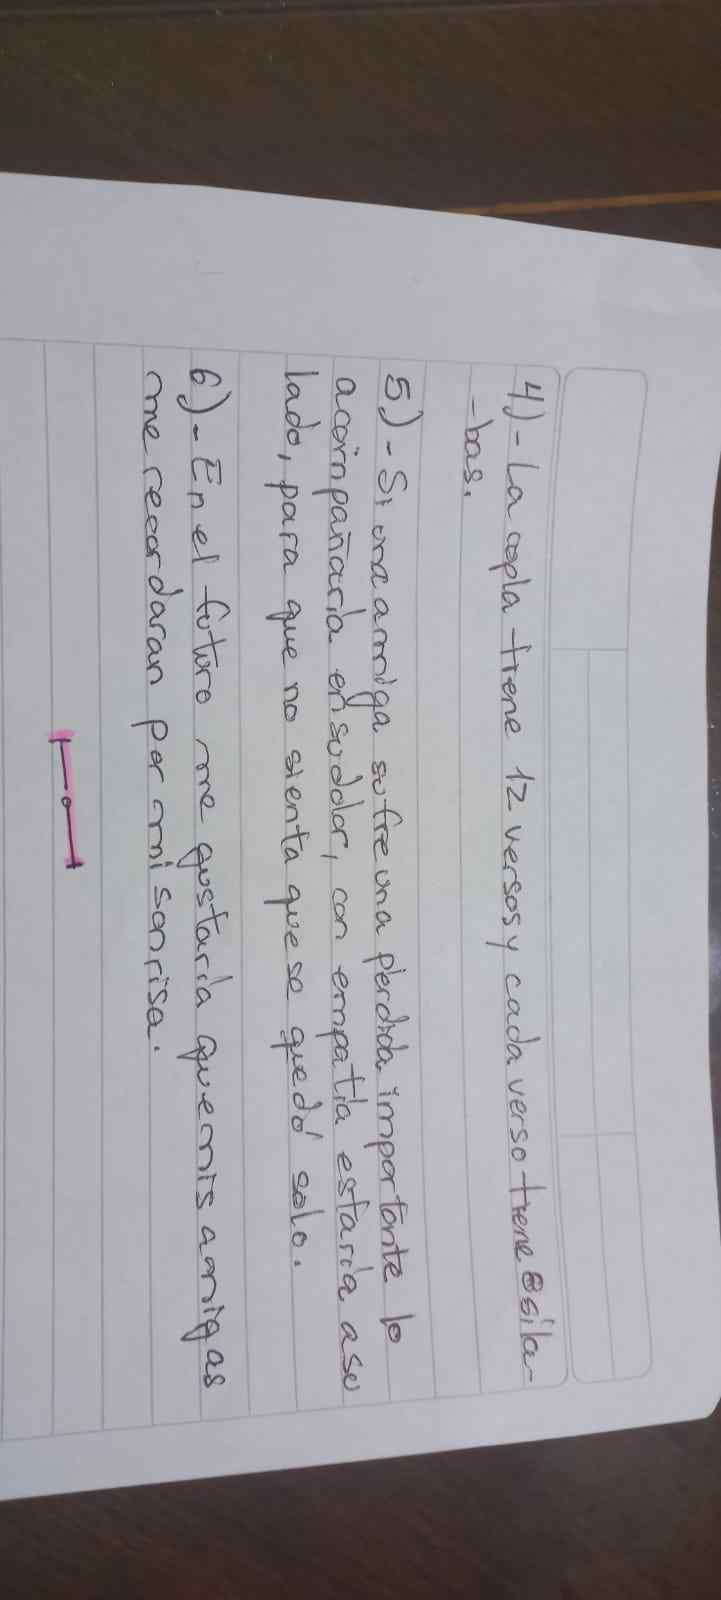 4)- La copla tiene 12 versos y cada verso tiene 8 sila-
-bas.
5)- Si una amiga sufre una perdida importante lo
acompañaría en su dolor, con empatía estaría a su
lado, para que no sienta que se quedó solo.
6)- En el futuro me gustaría que mis amigas
me recordaran por mi sonrisa.